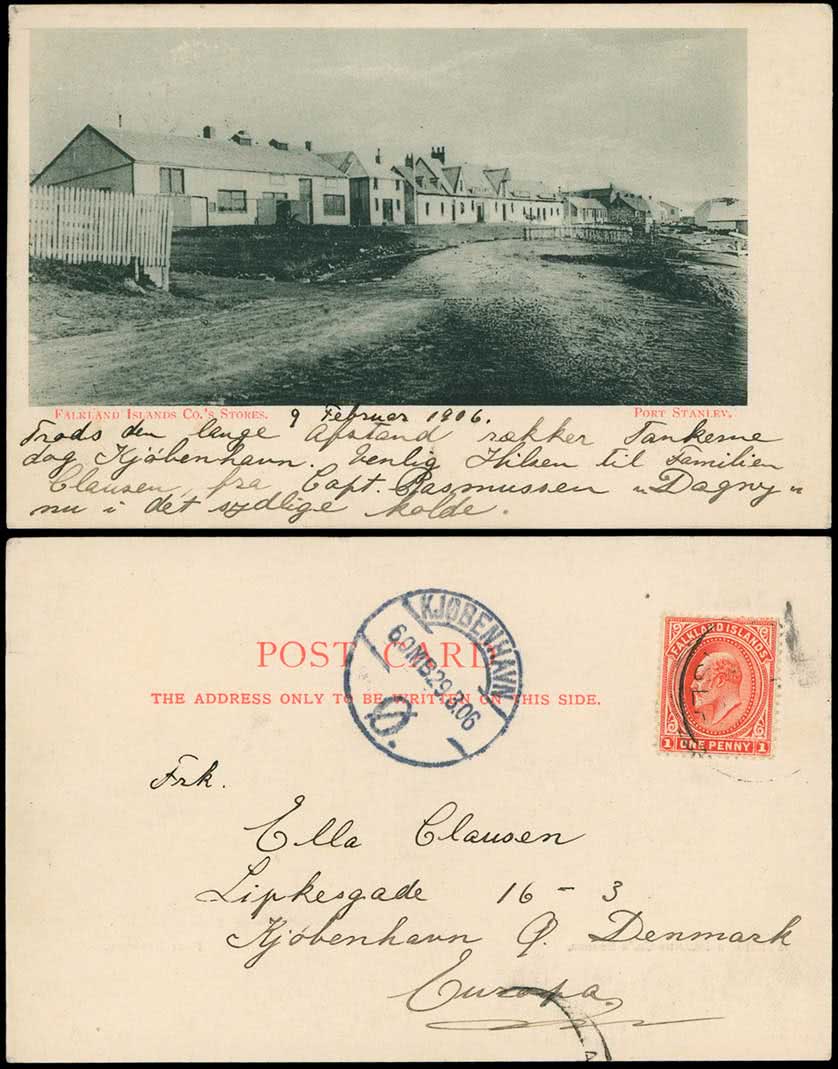 FALKLAND ISLANDS CO.'S STORES.
PORT STANLEY.
9 Februar 1906.
Trods den lange Afstand rækker Tankerne
dog Kjøbenhavn. Venlig Hilsen til Familien
Clausen, fra Capt. Rasmussen "Dagny"
nu i det sydlige kolde.
POST CARD
THE ADDRESS ONLY TO BE WRITTEN ON THIS SIDE.
KJØBENHAVN
6.OMB 29.3.06
Ø.
FALKLAND ISLANDS
1 ONE PENNY 1
Frk.
Ella Clausen
Lipkesgade 16 - 3
Kjøbenhavn Ø. Denmark
Europa.